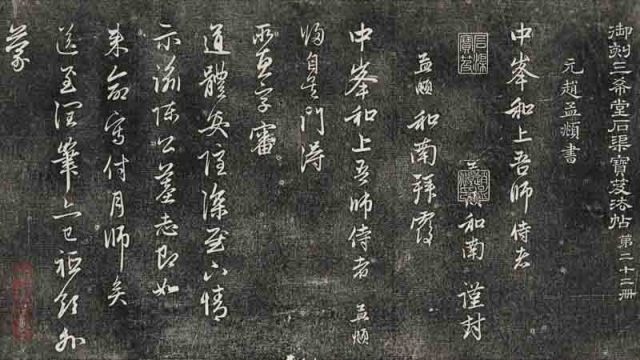 御刻三希堂石渠寶笈法帖 第二十二冊
元趙孟頫書
中峯和上吾師侍者
孟頫和南 謹封
孟頫和南拜覆
中峯和上吾師侍者 孟頫
歸自吳門得
所惠字審
道體安隱深慰下情
示諭陳公墓志即如
來命寫付月師矣
送至潤筆亦已祗領外
蒙